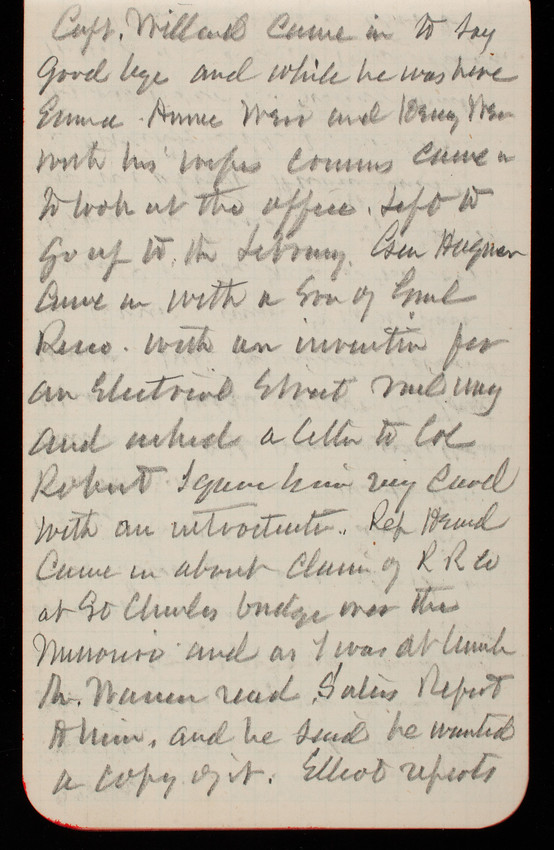 Capt. Willard came in to say
Good bye and while he was here
Emma Annie Weir and Henry Weir
with his wifes cousins came in
to look at the office. left to
go up to the Library. Gen
came in with a Son of Genl
with an invention for
an Electrical Street railway
and asked a letter to Col
Robert I gave him my card
with an introduction. Rep Heard
came in about claim of R R Co
at St Charles bridge over the
Missouri and as I was at lunch
Mr. Warren read Report
to him, and he said he wanted
a copy of it. Elliot reports